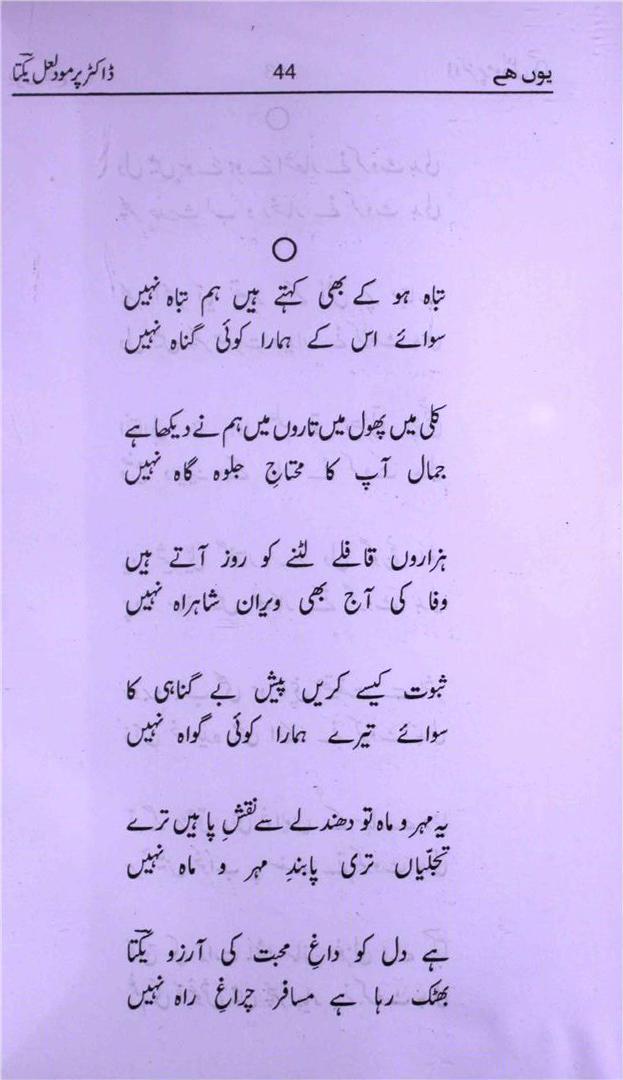 یوں ھے 44 ڈاکٹر پرمود لعل یکتا
تباہ ہو کے بھی کہتے ہیں ہم تباہ نہیں
سوائے اس کے ہمارا کوئی گناہ نہیں
کلی میں پھول میں تاروں میں ہم نے دیکھا ہے
جمال آپ کا محتاجِ جلوہ گاہ نہیں
ہزاروں قافلے لٹنے کو روز آتے ہیں
وفا کی آج بھی ویران شاہراہ نہیں
ثبوت کیسے کریں پیش بے گناہی کا
سوائے تیرے ہمارا کوئی گواہ نہیں
یہ مہر و ماہ تو دھندلے سے نقشِ پا ہیں ترے
تجلّیاں تری پابندِ مہر و ماہ نہیں
ہے دل کو داغِ محبت کی آرزو یکتاؔ
بھٹک رہا ہے مسافر چراغِ راہ نہیں